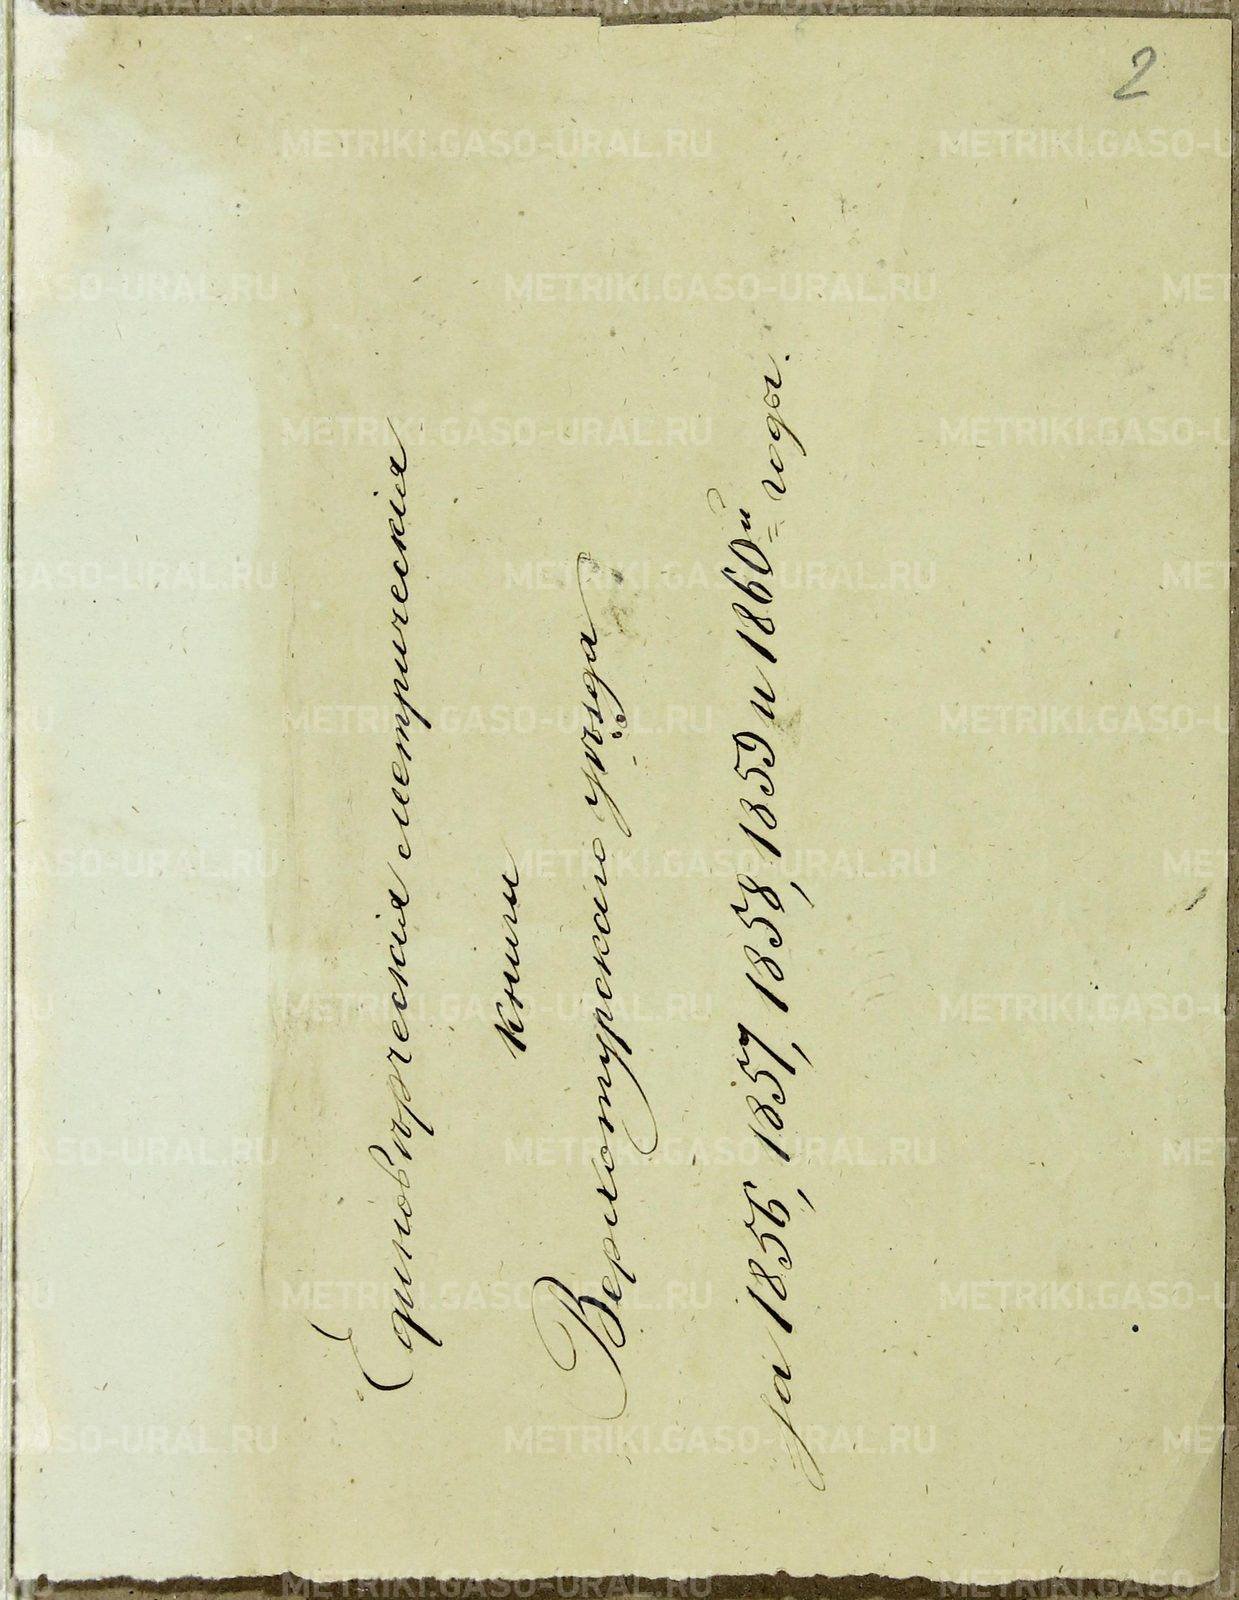 2
Единовѣрческія метрическія
книги
Верхотурскаго уѣзда
за 1856, 1857, 1858, 1859 и 1860й годы.
METRIKI.GASO-URAL.RU